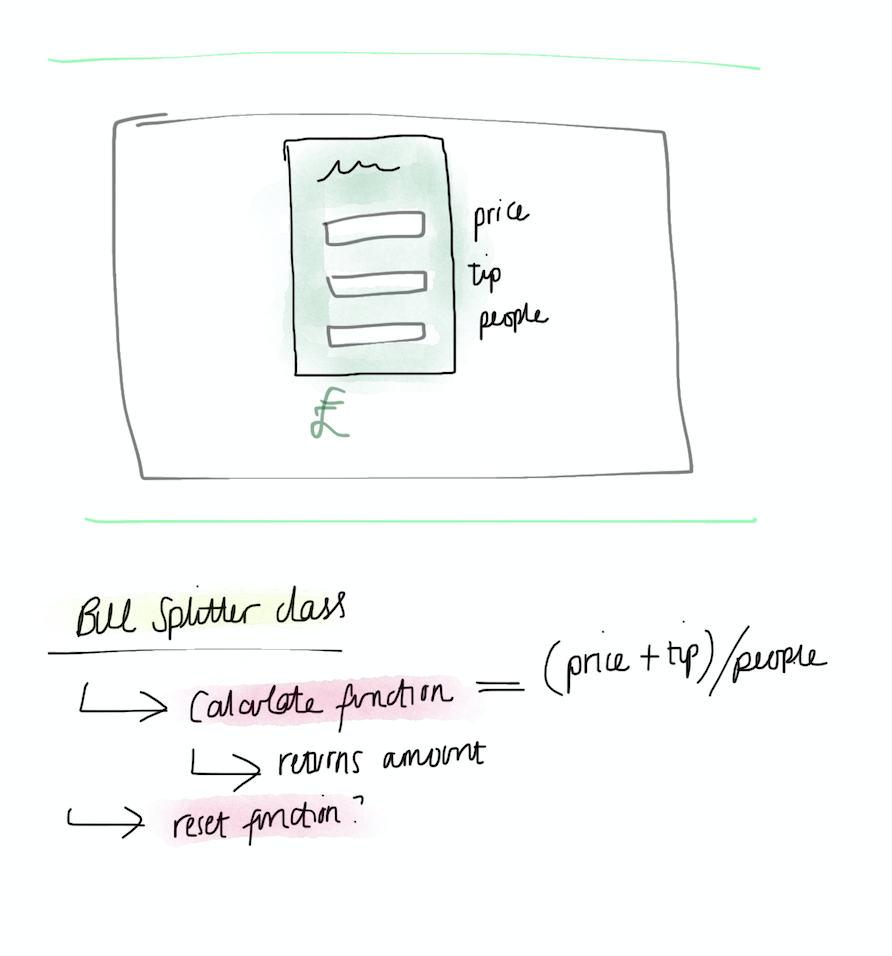 price
tip
people
£
Bill Splitter class
Calculate function = (price + tip)/people
returns amount
reset function?